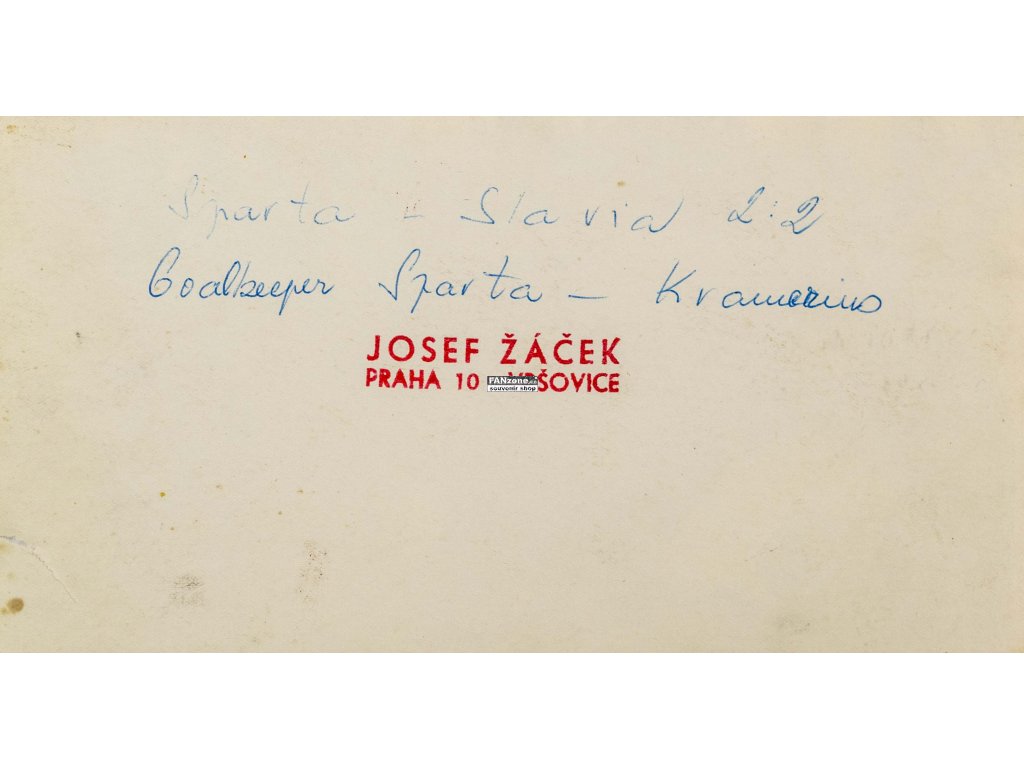 Sparta - Slavia 2:2
Goalkeeper Sparta - Kramerius
JOSEF ŽÁČEK
PRAHA 10 - VRŠOVICE
FANzone
souvenir shop